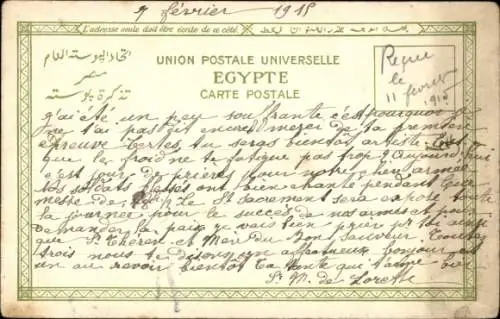 7 février 1915
L'adresse seule doit être écrite de ce côté.
اتحاد البوستة العام
UNION POSTALE UNIVERSELLE
مصر
EGYPTE
تذكرة بوستة
CARTE POSTALE
Reçue
le
11 février
1915
j'ai été un peu souffrante c'est pourquoi je
ne t'ai pas dit encore merci de ta première
épreuve certes, tu seras bientôt artiste
que le froid ne te fatigue pas trop ? Aujourd'hui
c'est jour des prières pour notre chère armée
Nos soldats blessés ont bien chanté pendant
messe de Le St Sacrement sera exposé toute
la journée pour le succès de nos armes et pour
demander la paix je vais bien prier pr toi ainsi
que Sr Thérèse et Mère du Bon Sauveur Toutes
trois nous te disons un affectueux bonjour et
un au revoir bientôt Ta tante qui t'aime bien
Sr M. de Lorette